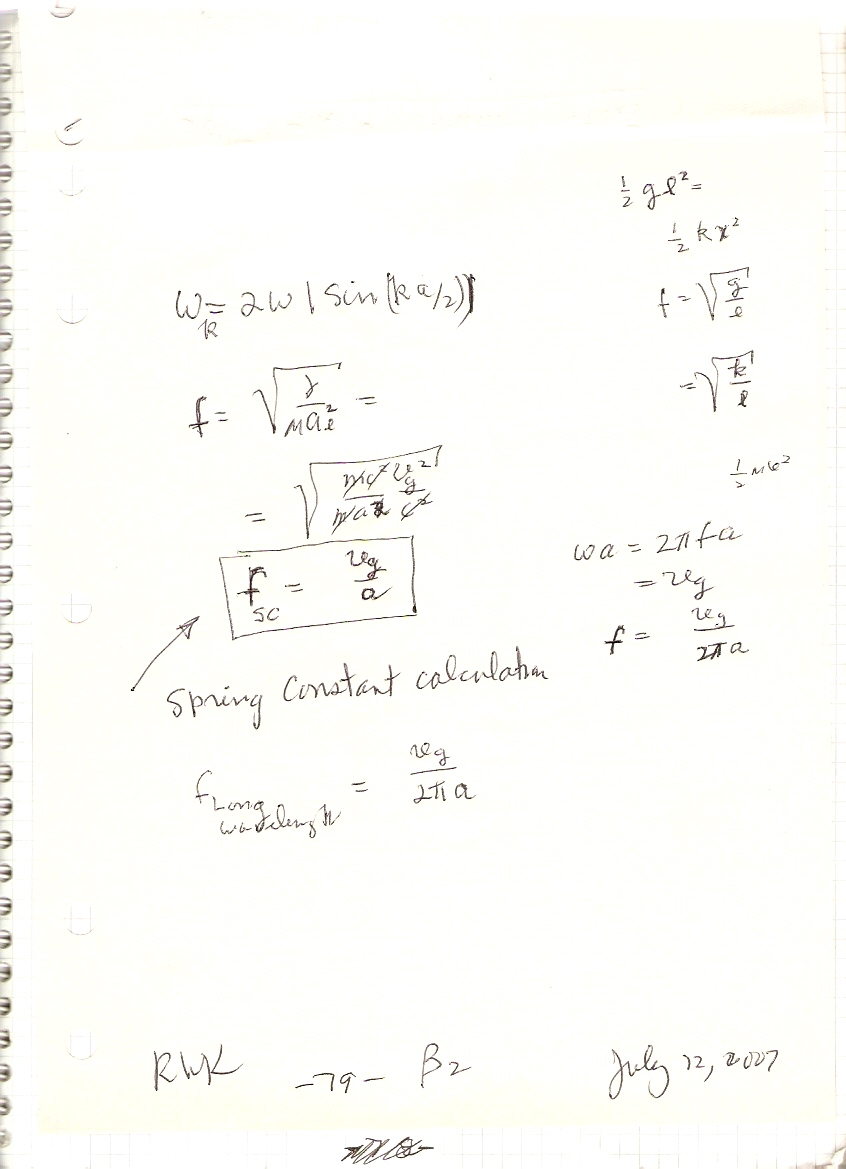 ½ g l² =
½ k x²
ω_k = 2ω | sin(k a/2)|
f = √(g/l)
= √(k/l)
f = √(γ/(M a_l²)) =
½ m v²
= √((mc² v_g²)/(m a² c²))
f_sc = v_g/a
ωa = 2πfa
= v_g
f = v_g/(2πa)
Spring Constant calculation
f_Long wavelength = v_g/(2πa)
RWK -79- β2 July 12, 2007